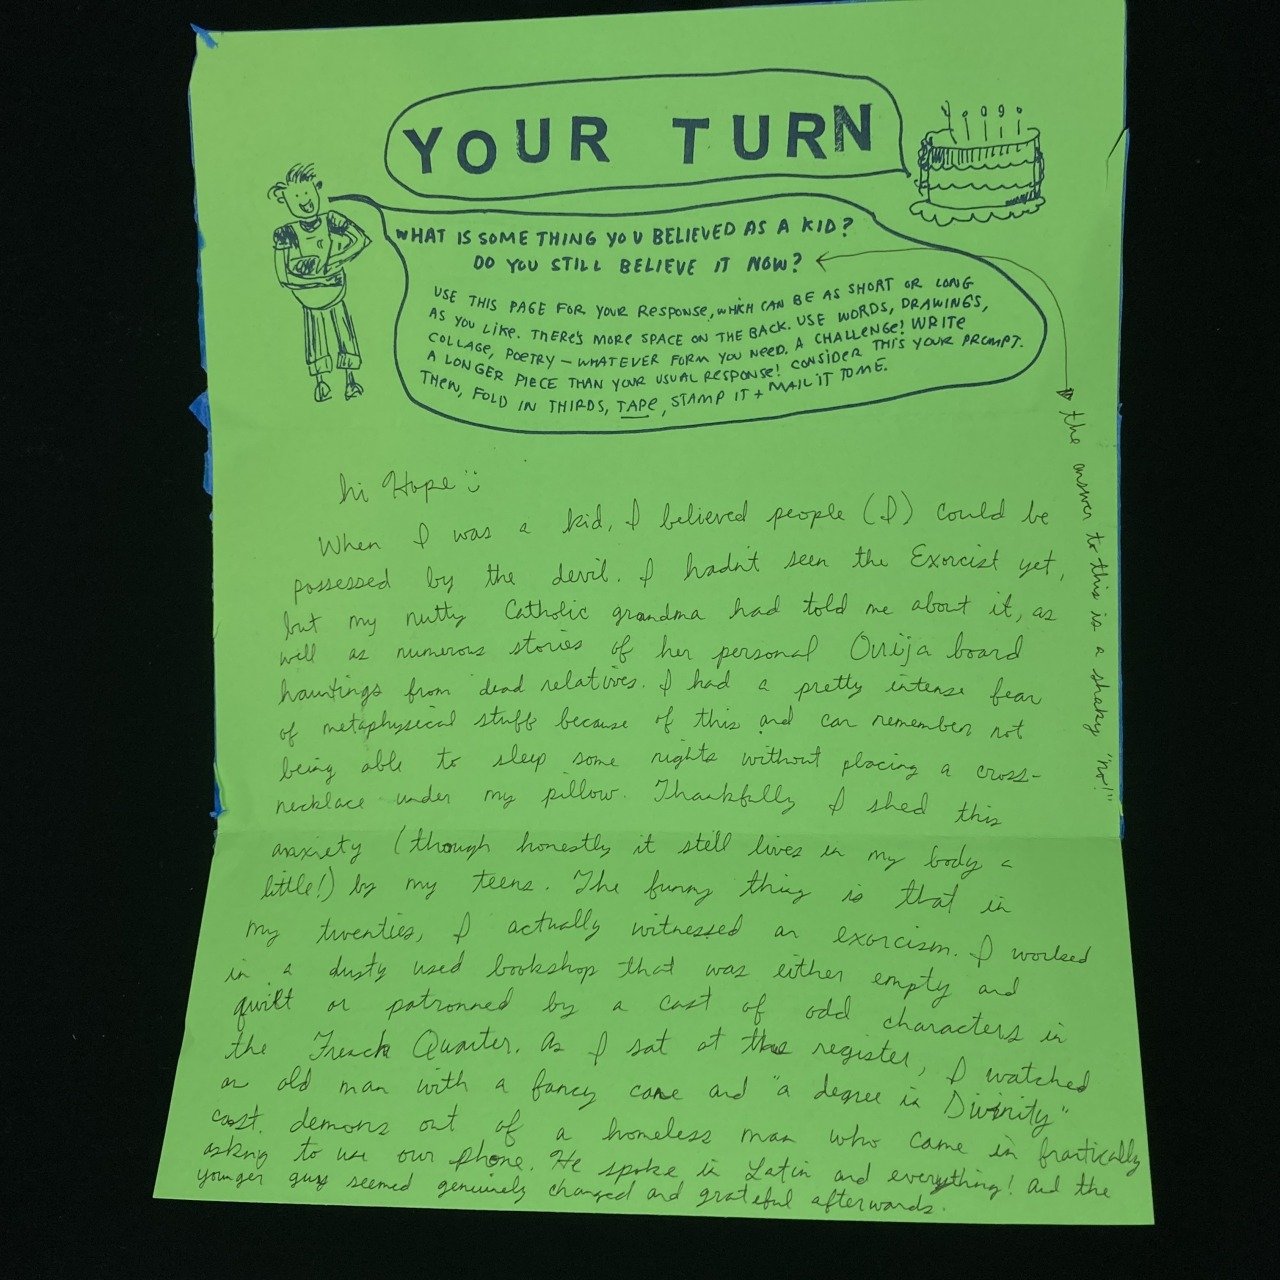 YOUR TURN
WHAT IS SOMETHING YOU BELIEVED AS A KID?
DO YOU STILL BELIEVE IT NOW?
USE THIS PAGE FOR YOUR RESPONSE, WHICH CAN BE AS SHORT OR LONG
AS YOU LIKE. THERE'S MORE SPACE ON THE BACK. USE WORDS, DRAWINGS,
COLLAGE, POETRY – WHATEVER FORM YOU NEED. A CHALLENGE! WRITE
A LONGER PIECE THAN YOUR USUAL RESPONSE! CONSIDER THIS YOUR PROMPT.
THEN, FOLD IN THIRDS, TAPE, STAMP IT + MAIL IT TO ME.
the answer to this is a shaky "no!"
hi Hope :)
When I was a kid, I believed people (I) could be
possessed by the devil. I hadn't seen the Exorcist yet,
but my nutty Catholic grandma had told me about it, as
well as numerous stories of her personal Ouija board
hauntings from dead relatives. I had a pretty intense fear
of metaphysical stuff because of this and can remember not
being able to sleep some nights without placing a cross-
necklace under my pillow. Thankfully I shed this
anxiety (though honestly it still lives in my body a
little!) by my teens. The funny thing is that in
my twenties, I actually witnessed an exorcism. I worked
in a dusty used bookshop that was either empty and
quiet or patronned by a cast of odd characters in
the French Quarter. As I sat at the register, I watched
an old man with a fancy cane and "a degree in Divinity"
cast demons out of a homeless man who came in frantically
asking to use our phone. He spoke in Latin and everything! And the
younger guy seemed genuinely changed and grateful afterwards.